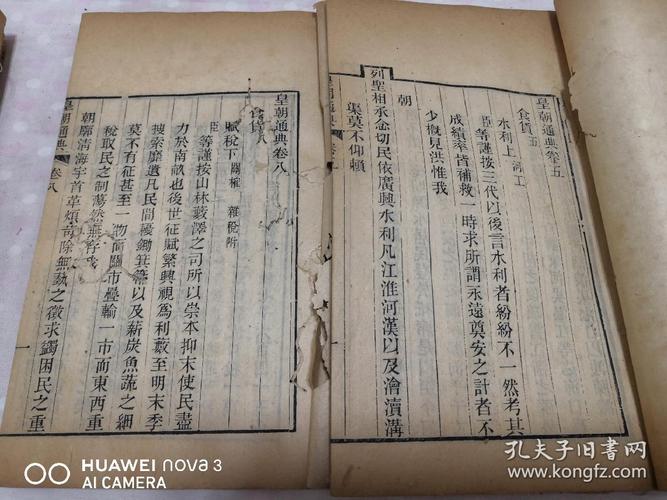 皇朝通典卷五
食貨五
水利上 河工
臣等謹按三代以後言水利者紛紛不一然考其
成績率皆補救一時求所謂永遠奠安之計者不
少概見洪惟我
朝
列聖相承念切民依廣興水利凡江淮河漢以及澮瀆溝
渠莫不仰賴
皇朝通典
皇朝通典卷八
食貨八
賦稅下 關榷 雜稅附
臣等謹按山林藪澤之司所以崇本抑末使民盡
力於南畝也後世征賦繁興視爲利藪至明末季
搜索靡遺凡民間耰鋤箕箒以及薪炭魚蔬之細
莫不有征甚至一物而關市疊輸一市而東西重
稅取民之制蕩然無存我
朝廓清海宇首革煩苛除無藝之徵求蠲困民之重
皇朝通典 卷八 一
HUAWEI nova 3
AI CAMERA
孔夫子旧书网
www.kongfz.com